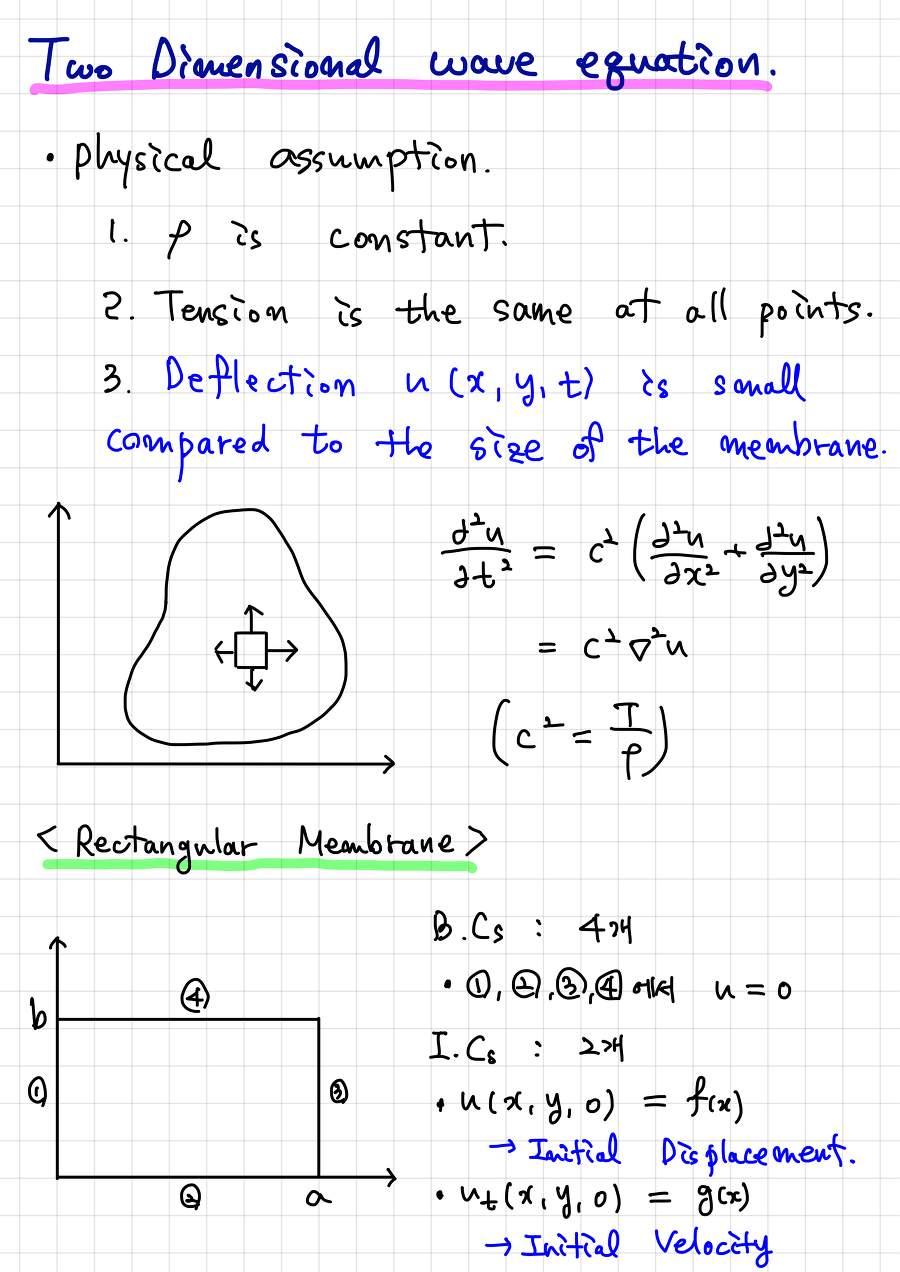 Two Dimensional wave equation.
• physical assumption.
1. ρ is constant.
2. Tension is the same at all points.
3. Deflection u(x, y, t) is small
compared to the size of the membrane.
∂²u/∂t² = c² (∂²u/∂x² + ∂²u/∂y²)
= c² ∇²u
(c² = T/ρ)
< Rectangular Membrane >
b
④
①
③
②
a
B.Cs : 4개
• ①, ②, ③, ④ 에서 u = 0
I.Cs : 2개
• u(x, y, 0) = f(x)
→ Initial Displacement.
• u_t(x, y, 0) = g(x)
→ Initial Velocity